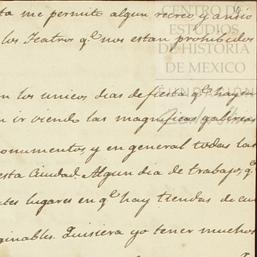 ta me permite algun recreo y ansio
los Teatros q.e nos estan prohibidos
CENTRO DE
ESTUDIOS
DE HISTORIA
DE MEXICO
n los unicos dias de fiesta q.e hay
n ir viendo las magnificas galerias
onumentos, y en general todas las
esta Ciudad. Algun dia de trabajo, q.e
tes lugares en q.e hay tiendas de cu
ginables. Quisiera yo tener muchos